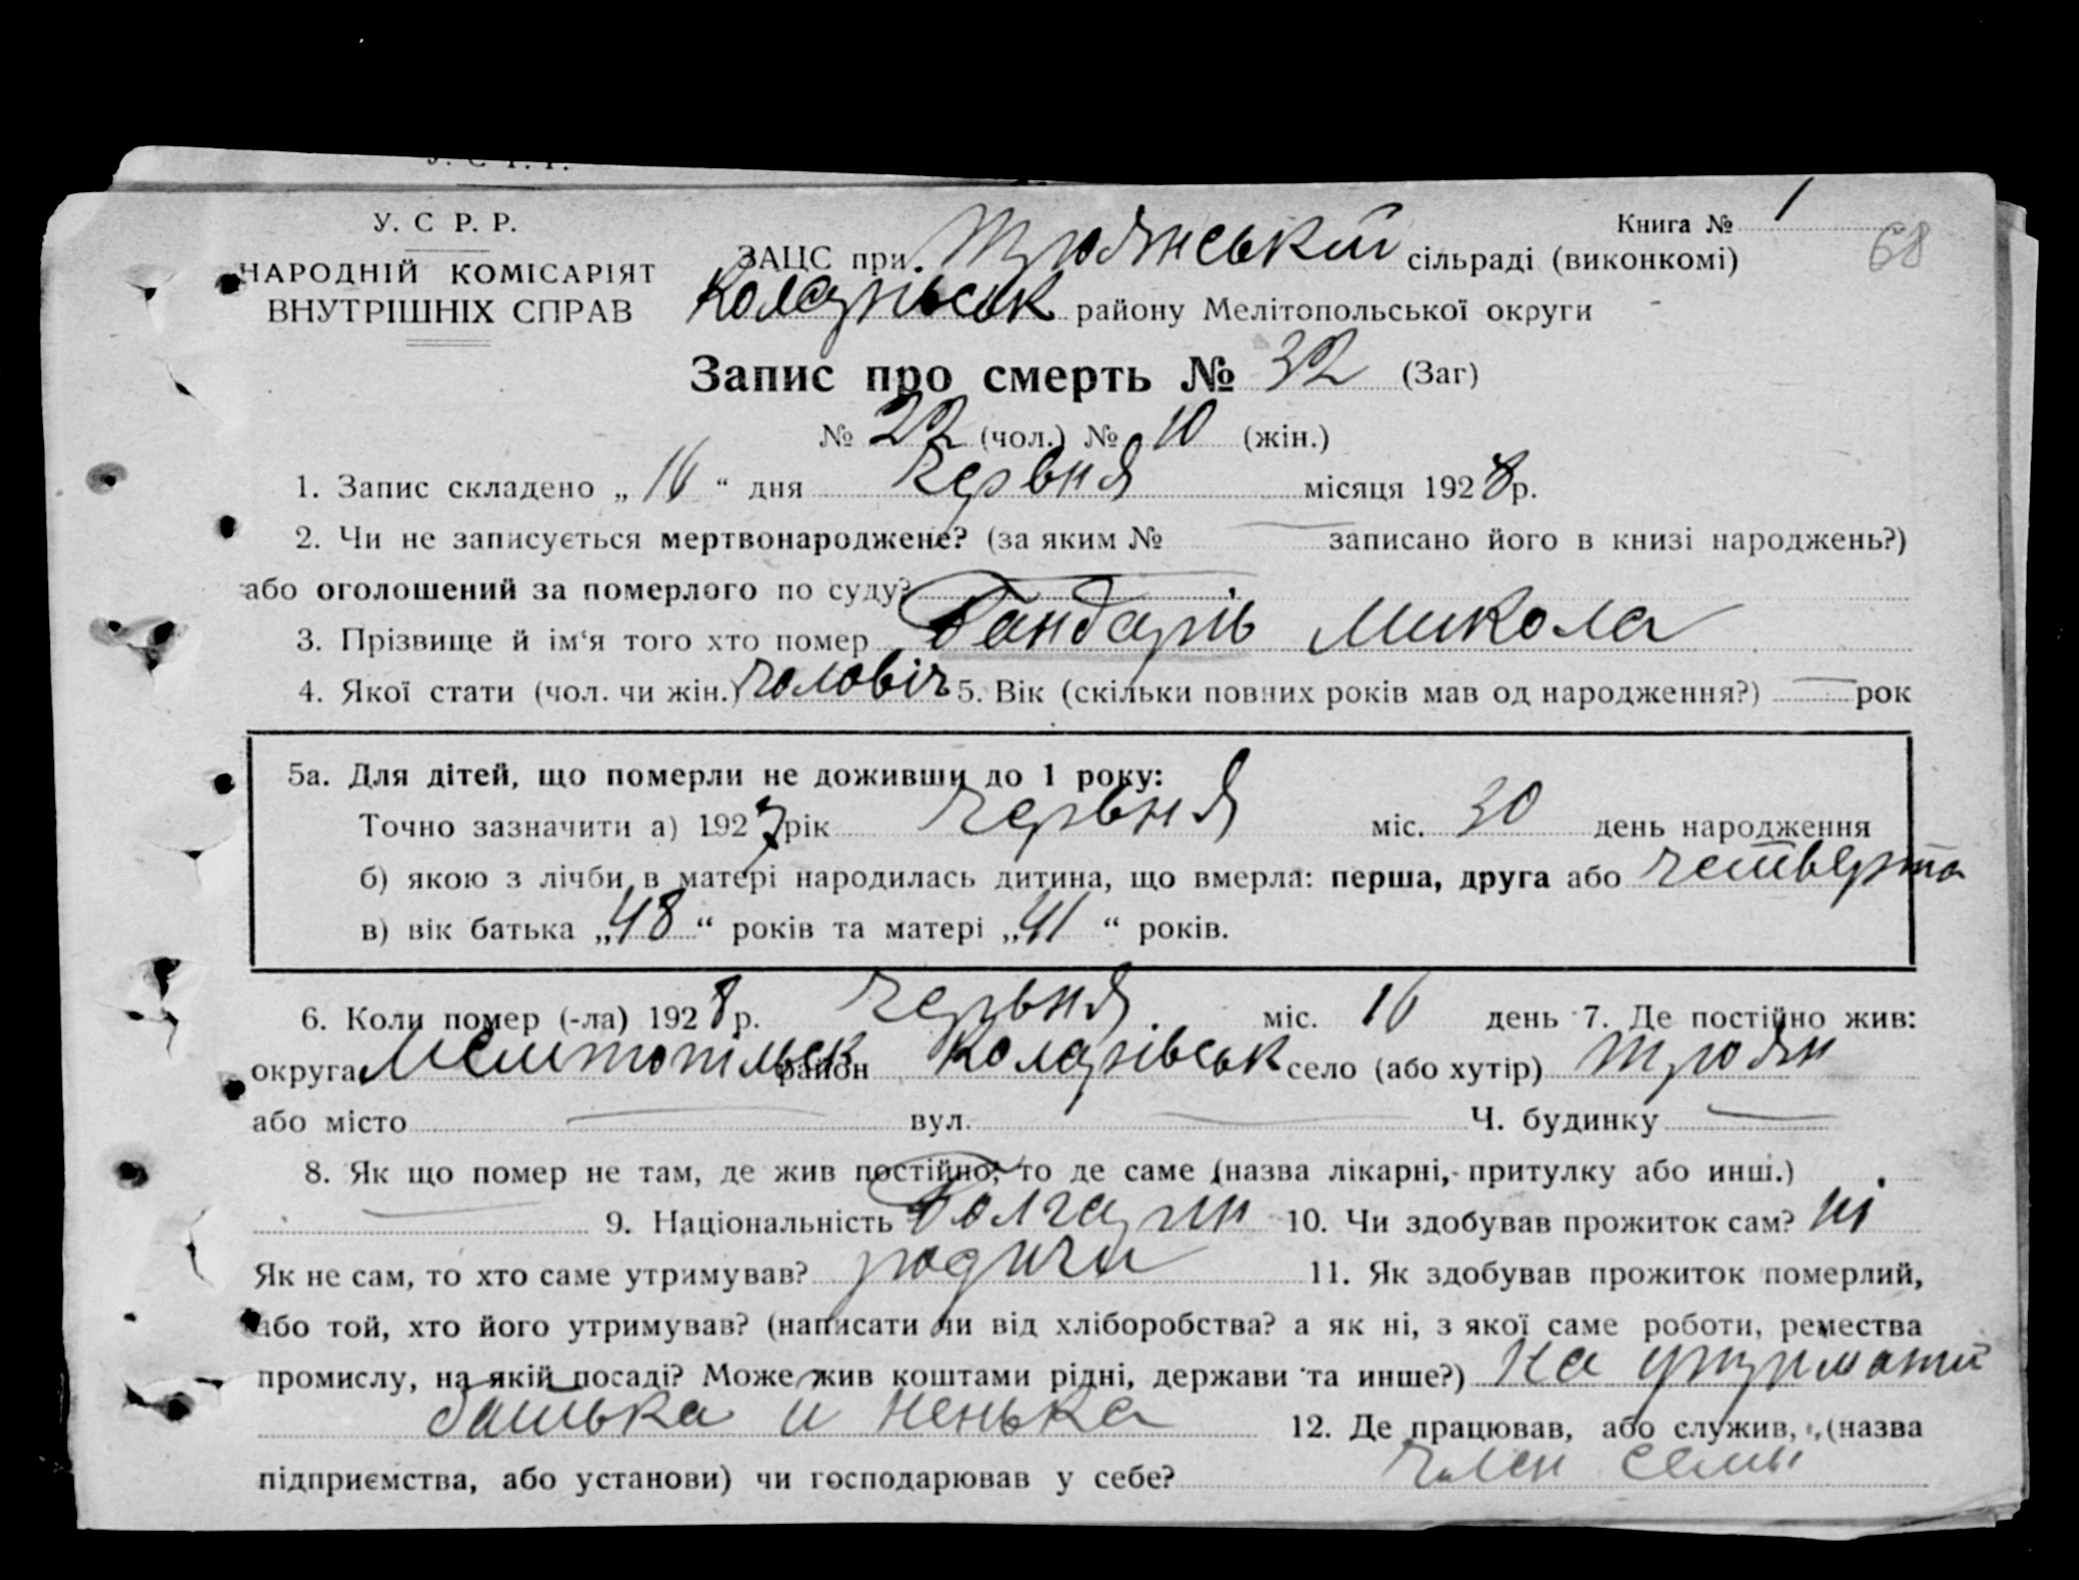 У. С. Р. Р.
У. С Р. Р.
НАРОДНІЙ КОМІСАРІЯТ
ВНУТРІШНІХ СПРАВ
Книга № 1
68
ЗАЦС при Троянській сільраді (виконкомі)
Коларівськ району Мелітопольської округи
Запис про смерть № 32 (Заг)
№ 22 (чол.) № 10 (жін.)
1. Запис складено „ 16 “ дня червня місяця 1928 р.
2. Чи не записується мертвонароджене? (за яким № записано його в книзі народжень?)
або оголошений за померлого по суду?
3. Прізвище й ім‘я того хто помер Бандарів Микола
4. Якої стати (чол. чи жін.) чоловіч 5. Вік (скільки повних років мав од народження?) — рок
5а. Для дітей, що померли не доживши до 1 року:
Точно зазначити а) 1927 рік червня міс. 30 день народження
б) якою з лічби в матері народилась дитина, що вмерла: перша, друга або четверта
в) вік батька „48“ років та матері „41“ років.
6. Коли помер (-ла) 1928 р. червня міс. 16 день 7. Де постійно жив:
округа Мелітопільськ район Коларівськ село (або хутір) Троян
або місто — вул. — Ч. будинку —
8. Як що помер не там, де жив постійно, то де саме (назва лікарні, притулку або инш.)
— 9. Національність Болгарин 10. Чи здобував прожиток сам? ні
Як не сам, то хто саме утримував? родичи 11. Як здобував прожиток померлий,
або той, хто його утримував? (написати чи від хліборобства? а як ні, з якої саме роботи, ремества
промислу, на якій посаді? Може жив коштами рідні, держави та инше?) На утриматі
батька и ненька 12. Де працював, або служив, (назва
підприємства, або установи) чи господарював у себе? член семи